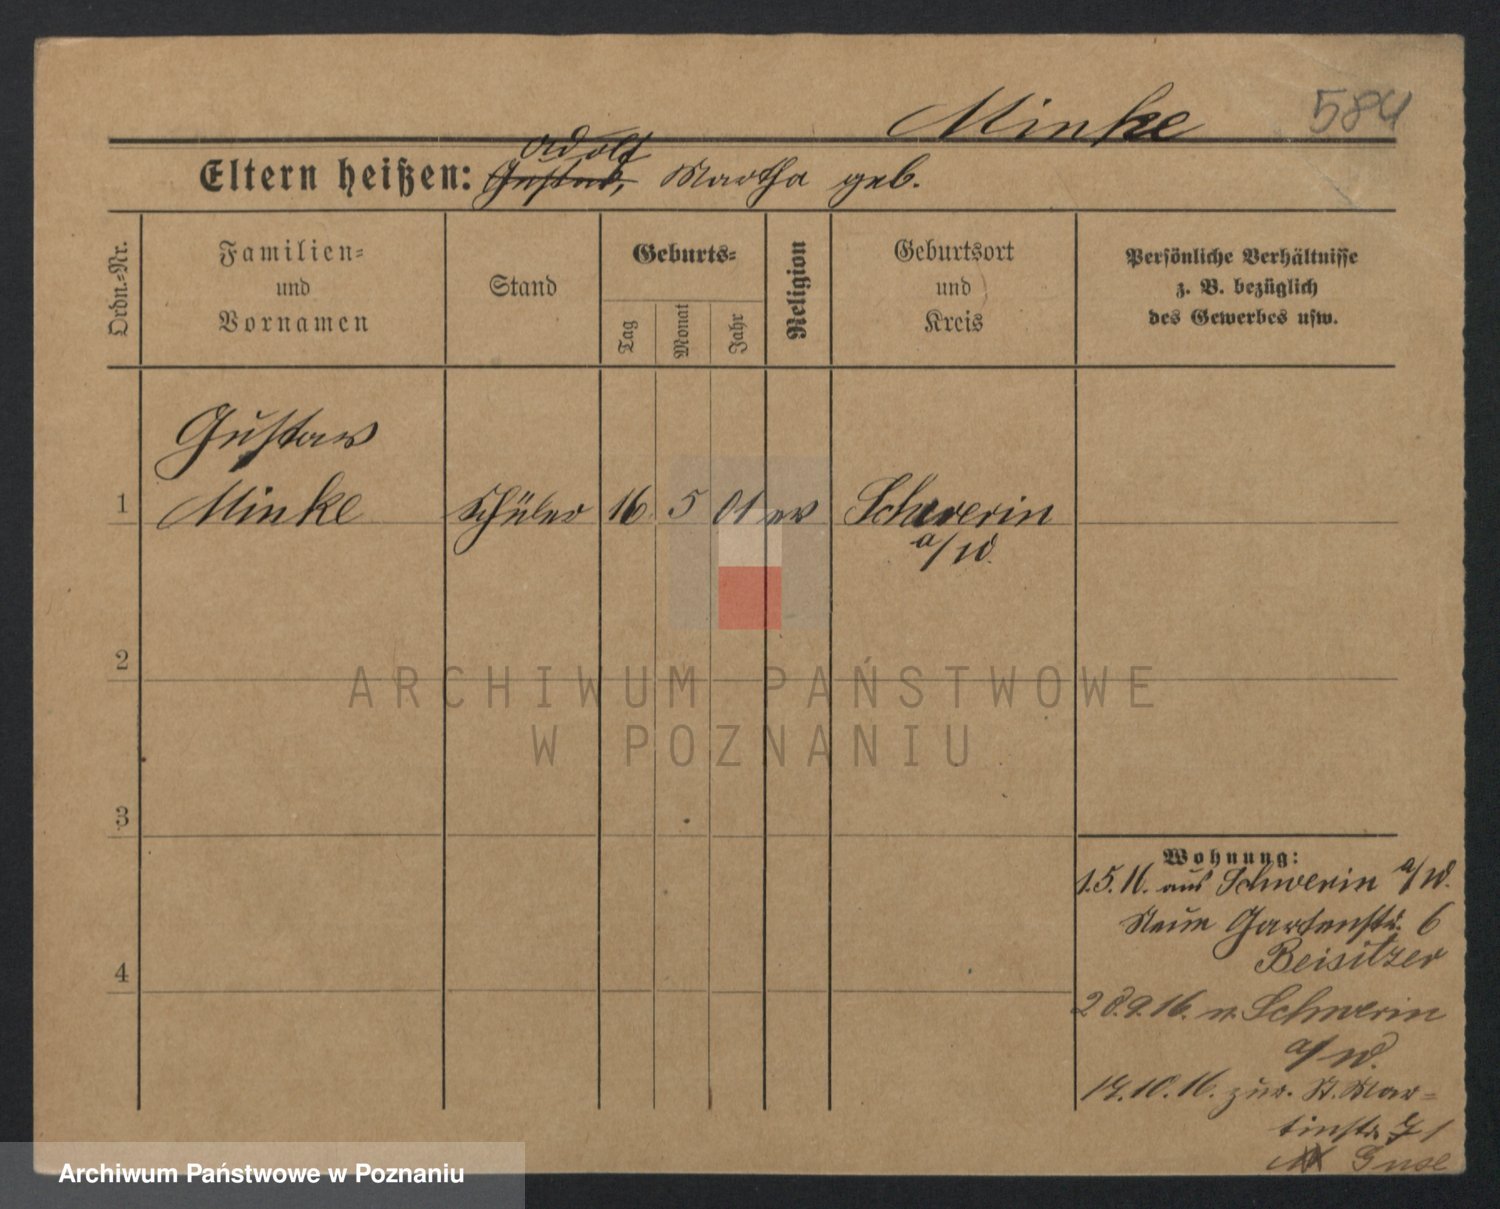 Minke 584
Adolf
Eltern heißen: Gustav, Martha geb.
Ordn.=Nr.
Familien=
und
Vornamen
Stand
Geburts=
Tag
Monat
Jahr
Religion
Geburtsort
und
Kreis
Persönliche Verhältnisse
z. B. bezüglich
des Gewerbes usw.
Gustav
1 Minke Schüler 16 5 01 ev Schwerin
a/W.
2
ARCHIWUM PAŃSTWOWE
W POZNANIU
3
Wohnung:
1.5.16. aus Schwerin a/W.
Neue Gartenstr. 6
Beisitzer
4
28.9.16. n. Schwerin
a/W.
17.10.16. zur. St. Mar=
tinstr.
Archiwum Państwowe w Poznaniu